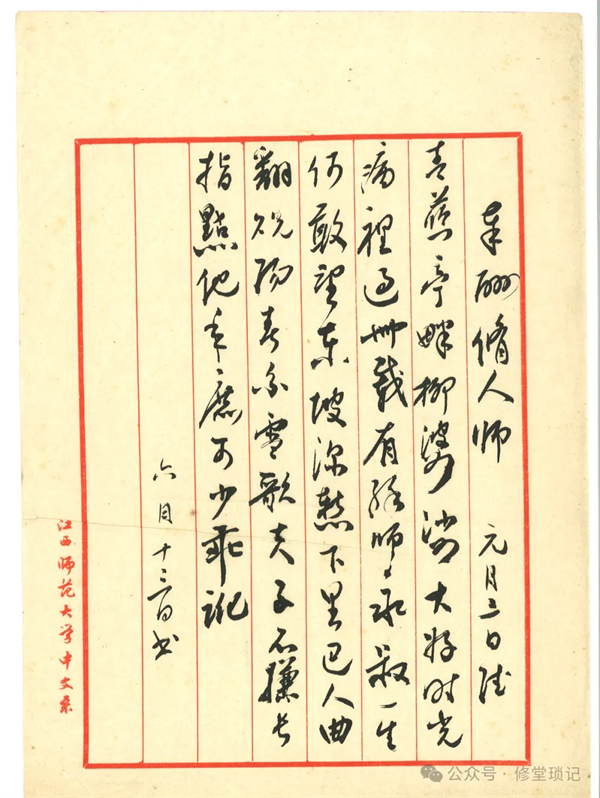 奉酬脩人师 元月二日
亭畔柳婆娑大好时光
病裡过卅载有缘师永叔一生
何敢望东坡深慙下里巴人曲
翻阳春白雪歌夫子不嫌长
指點他年庶可少乖讹
六月十三日书
江西师范大学中文系
公众号·修堂琐记